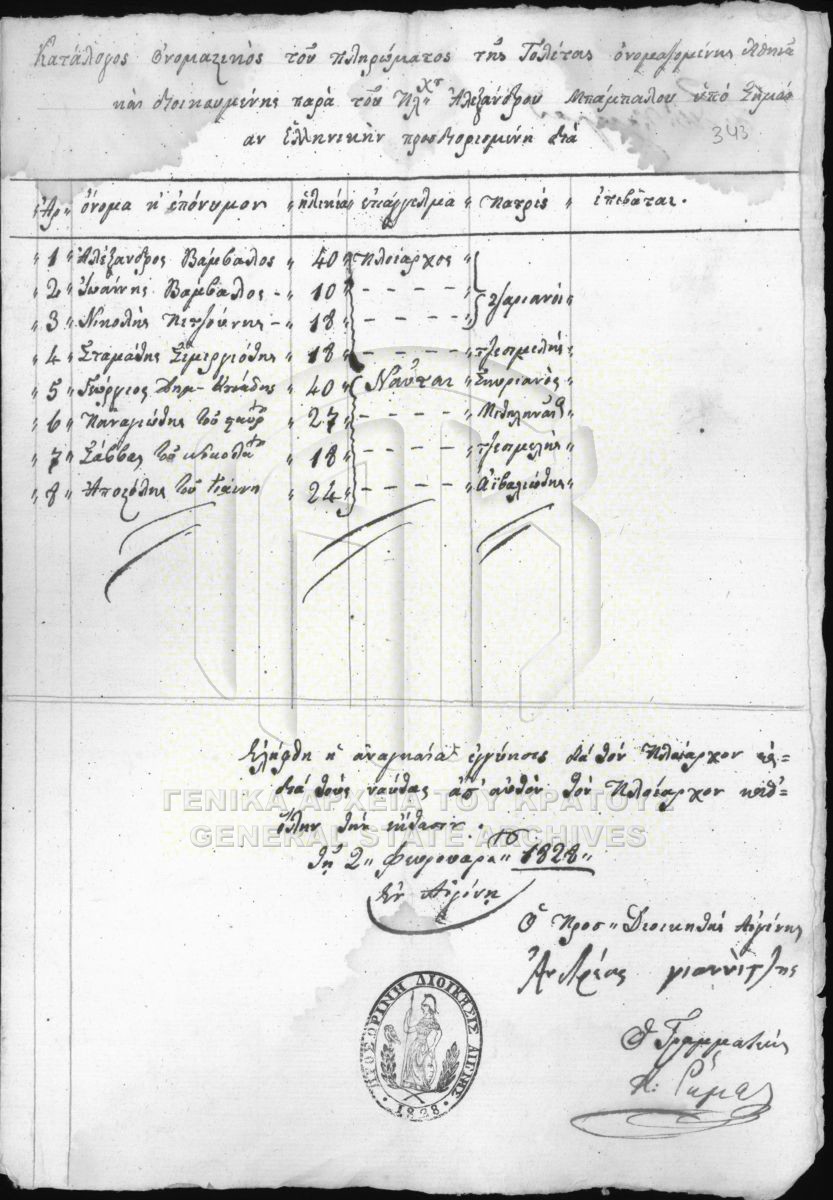 Κατάλογος ὀνομαστικὸς τοῦ πληρώματος τῆς Γολέτας ὀνομαζομένης Ἀθηνᾶ
καὶ διοικουμένης παρὰ τοῦ Πλ Ἀλεξάνδρου Μπάμπαλου ὑπὸ Σημαί
αν Ἑλληνικὴν προσδιορισμένη διὰ
343
Ἀρ " ὄνομα κ' ἐπόνυμον " ἡλικία " ἐπάγγελμα " Πατρίς " ἐπιβάται.
" 1 " Ἀλέξανδρος Βάμβαλος " 40 " Πλοίαρχος "
" 2 " Ἰωάννης Βάμβαλος - " 10 " - - - - " Ψαριανοί "
" 3 " Νικολῆς - " 18 " - - - - "
" 4 " Σταμάτης " 18 " - - - - " τζεσμελής "
" 5 " Γεώργιος Δημ- " 40 " Ναῦται " Σκυριανὸς "
" 6 " Παναγιώτης τοῦ " 27 " - - - - " "
" 7 " Σάββας τοῦ " 18 " - - - - " τζεσμελής "
" 8 " Ἀποστόλης τοῦ Γιάννη " 24 " - - - - " Ἀϊβαλιώτης "
Ἐλήφθη ἡ ἀναγκαία ἐγγύησις διὰ τὸν Πλοίαρχον
διὰ τοὺς ναύτας ἀπ' αὐτὸν τὸν Πλοίαρχον καθ'
ὅλην τὴν
τῇ 2 " Φευρουαρ " 1828 "
Ἐν Αἰγίνῃ
Ὁ Προσ " Διοικητὴς Αἰγίνης
Ἀνδρέας γιαννίτζης
Ὁ Γραμματεὺς
ΠΡΟΣΩΡΙΝΗ ΔΙΟΙΚΗΣΙΣ ΑΙΓΙΝΗΣ
· 1828 ·
ΓΕΝΙΚΑ ΑΡΧΕΙΑ ΤΟΥ ΚΡΑΤΟΥΣ
GENERAL STATE ARCHIVES